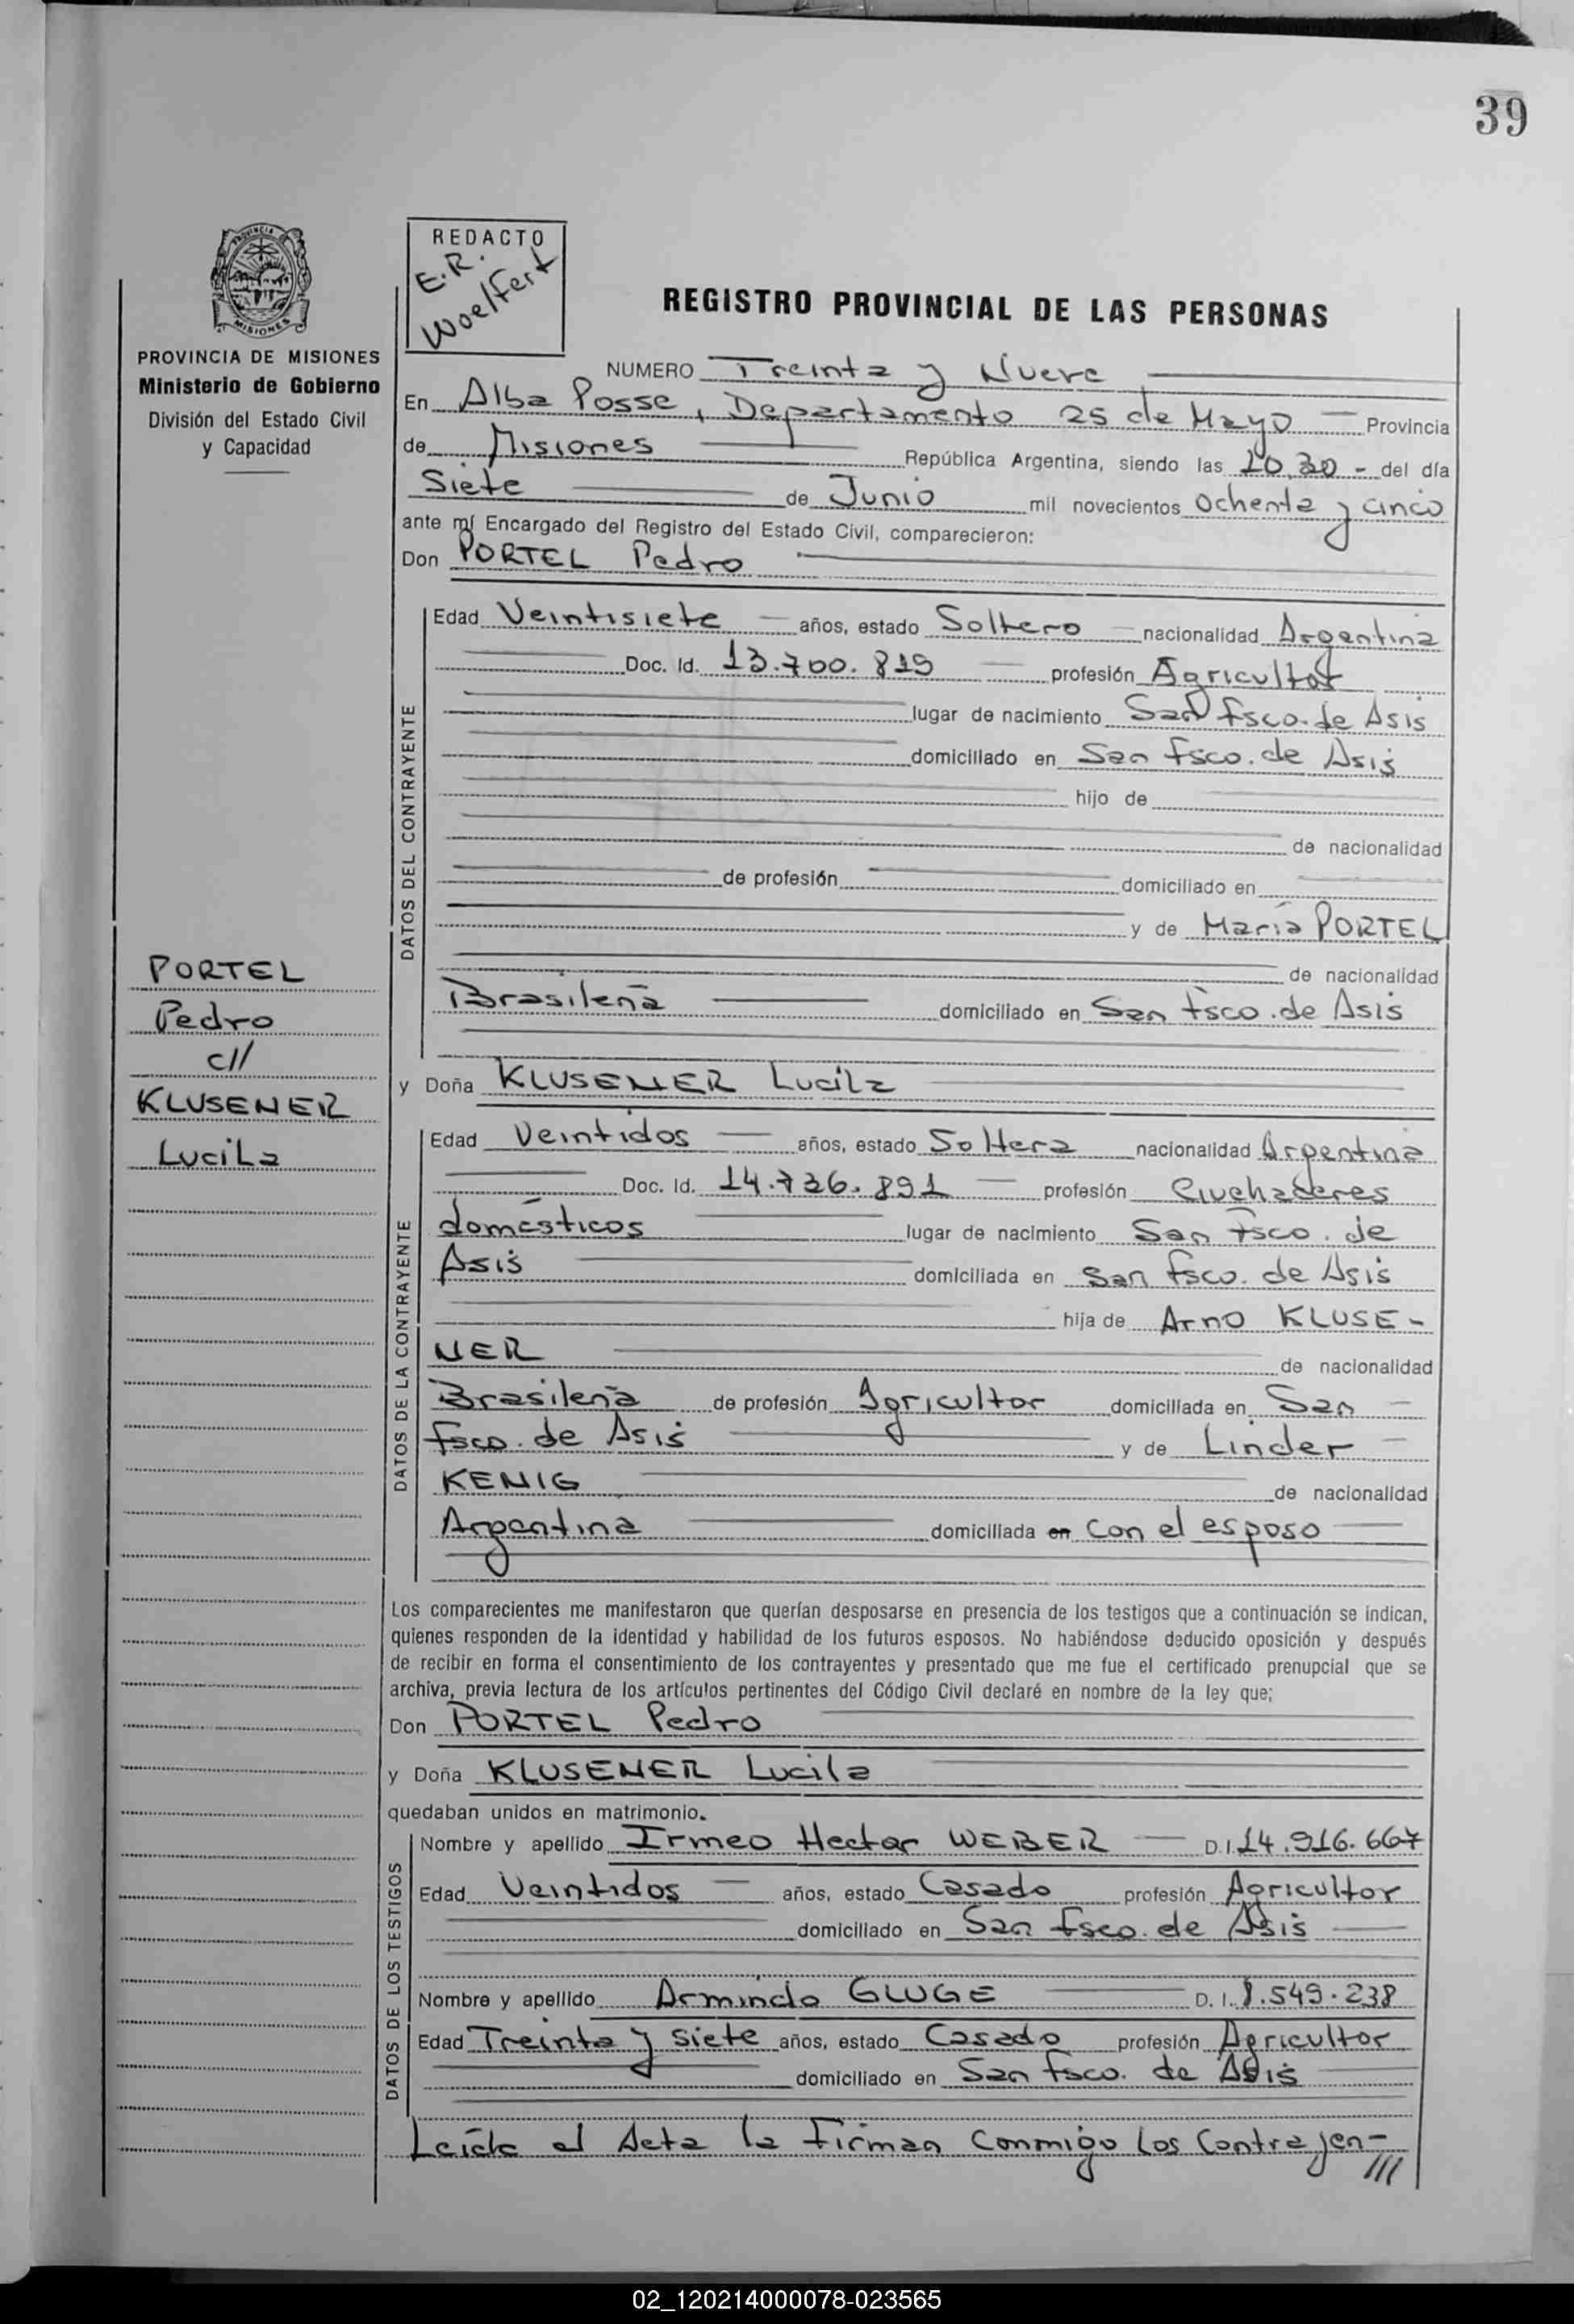 39
PROVINCIA DE MISIONES
Ministerio de Gobierno
División del Estado Civil
y Capacidad
REDACTO
E.R.
Woelfert
REGISTRO PROVINCIAL DE LAS PERSONAS
NUMERO Treinta y Nueve
En Alba Posse, Departamento 25 de Mayo Provincia
de Misiones República Argentina, siendo las 10,30 - del día
Siete de Junio mil novecientos Ochenta y cinco
ante mí Encargado del Registro del Estado Civil, comparecieron:
Don PORTEL Pedro
DATOS DEL CONTRAYENTE
Edad Veintisiete años, estado Soltero nacionalidad Argentina
Doc. Id. 13.700.819 profesión Agricultor
lugar de nacimiento San Fsco. de Asis
domiciliado en San Fsco. de Asis
hijo de
de nacionalidad
de profesión domiciliado en
y de María PORTEL
de nacionalidad
Brasileña domiciliado en San Fsco. de Asis
PORTEL
Pedro
c//
KLUSENER
Lucila
y Doña KLUSENER Lucila
DATOS DE LA CONTRAYENTE
Edad Veintidos años, estado Soltera nacionalidad Argentina
Doc. Id. 14.736.891 profesión Quehaceres
domésticos lugar de nacimiento San Fsco. de
Asis domiciliada en San Fsco. de Asis
hija de Arno KLUSE-
NER de nacionalidad
Brasileña de profesión Agricultor domiciliada en San
Fsco. de Asis y de Linder
KENIG de nacionalidad
Argentina domiciliada en con el esposo
Los comparecientes me manifestaron que querían desposarse en presencia de los testigos que a continuación se indican,
quienes responden de la identidad y habilidad de los futuros esposos. No habiéndose deducido oposición y después
de recibir en forma el consentimiento de los contrayentes y presentado que me fue el certificado prenupcial que se
archiva, previa lectura de los artículos pertinentes del Código Civil declaré en nombre de la ley que;
Don PORTEL Pedro
y Doña KLUSENER Lucila
quedaban unidos en matrimonio.
DATOS DE LOS TESTIGOS
Nombre y apellido Irmeo Hector WEBER D.I. 14.916.667
Edad Veintidos años, estado Casado profesión Agricultor
domiciliado en San Fsco. de Asis
Nombre y apellido Armindo GLUGE D.I. 8.549.238
Edad Treinta y siete años, estado Casado profesión Agricultor
domiciliado en San Fsco. de Asis
Leída el Acta la Firman Conmigo los Contrayen-
///
02_120214000078-023565